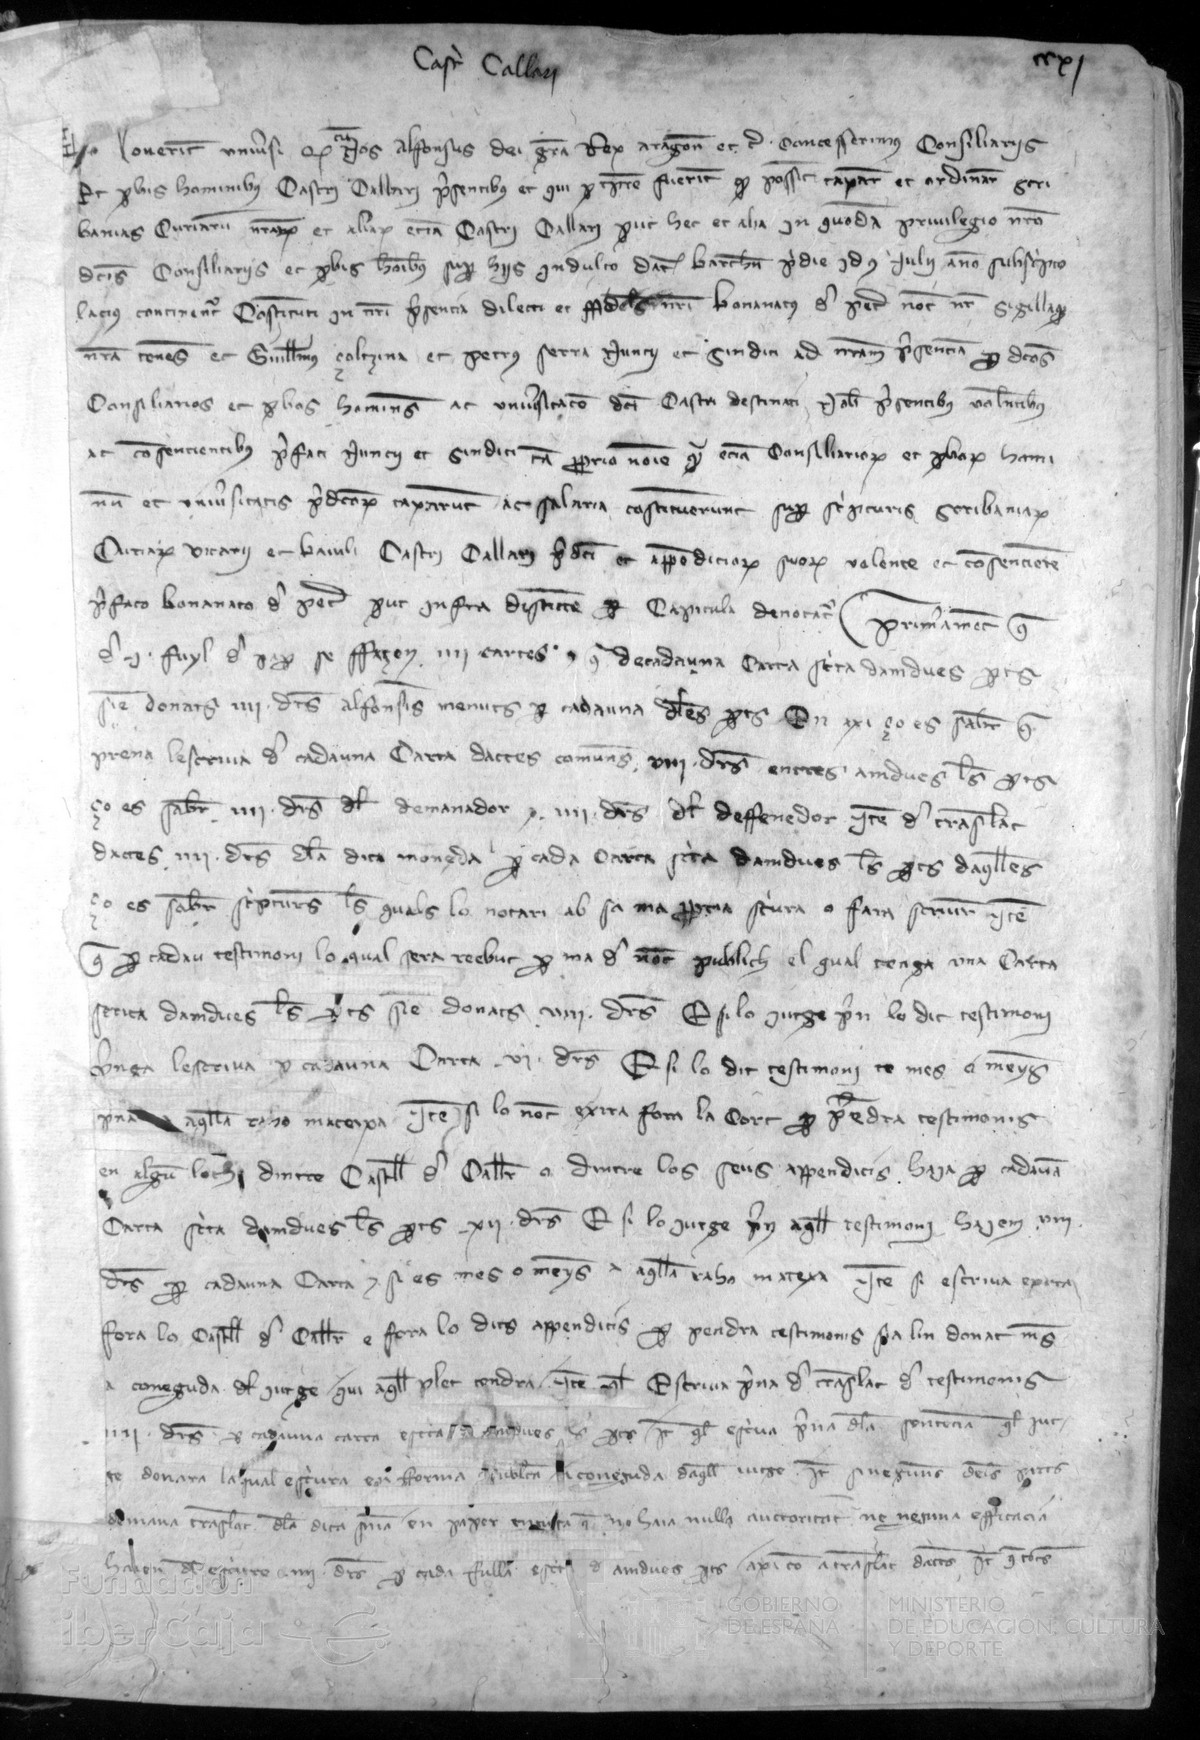 Castri Callari
ccxj
Noverint universi q cum Nos Alfonsus dei gra Rex aragon etc. Concesserimus Consiliariis
Et pbis hominibus Castri Callari psentibus et qui p tpre fuerint q possint taxare et ordinar scri
banias Curiaru nrar et aliar ecia Castri Callari put hec et alia in quoda privilegio nro
dcis Consiliariis et pbis hoibus sup hiis indulto dat barchn pdie idus iulii anno subscripto
lacius continent Constituti in nri psentia dilecti et fideles nri bonanatus d petr not nr sigillaq
nra tenes et Guillmus colzina et petrus serra Nuncii et sindici ad nram psencia p dcos
Consiliarios et pbos homines ac universitate dci Castri destinati Nob psentibus volentibus
ac consencientibus pfati Nuncii et sindici ta pprio noie q ecia Consiliarior et pbor homi
nu et universitatis pdcor taxarunt ac salaria constituerunt sup scripturis scribaniar
Curiar vicarii et baiuli Castri Callari pdci et appendicior suor volente et consenciente
pfato bonanato d petr put infra distincte p Capitula denotat Primament q
d .i. fuyl d pap se ffaçen .iiii. cartes e q decadauna Carta scta damdues pts
sie donats .iiii. drs alfonsis menuts p cadauna dles pts En axi ço es saber q
prena lescriva d cadauna Carta dactes comuns .viii. drs entres amdues les pts
ço es saber .iiii. drs del demanador e .iiii. drs del deffenedor Ite d traslat
dactes .iiii. drs dla dita moneda p cada Carta scta damdues les pts daqlles
ço es saber scriptures les quals lo notari ab sa ma ppria scriura o fara scriure Ite
q p cadau testimoni lo qual sera reebut p ma d not publich el qual tenga una Carta
scrita damdues les pts sie donats .viii. drs E si lo jutge pn lo dit testimoni
pnga lescriva p cadauna Carta .vi. drs E si lo dit testimoni te mes o meyns
pna a aqlla raho mateixa Ite si lo not exira fora la Cort p pedra testimonis
en algu loch dintre Castell d Caller o dintre los seus appendicis haja p cadauna
Carta scta damdues les pts .xii. drs E si lo jutge pn aqll testimoni hajen .viii.
drs p cadauna Carta e si es mes o meyns a aqlla raho mateixa Ite si escriva exira
fora lo Castell d Caller e fora lo dits appendicis p pendra testimonis sia lin donat mes
a coneguda del jutge qui aqll plet tendra Ite ql Escriva pna d traslat d testimonis
.iiii. drs p cadauna carta escrita damdues les pts It ql escriva pna dla sentencia ql jut
ge donara la qual escriura en forma publica a coneguda daqll jutge It si neguns deis parts
demana traslat dla dita snia en paper q no haia nulla auctoritat ne neguna efficacia
hajen del escriure .iiii. drs p cada fulla escrit d amdues pts axi co a traslat dactes It q tots
Fundación
iberCaja
GOBIERNO
DE ESPAÑA
MINISTERIO
DE EDUCACIÓN, CULTURA
Y DEPORTE